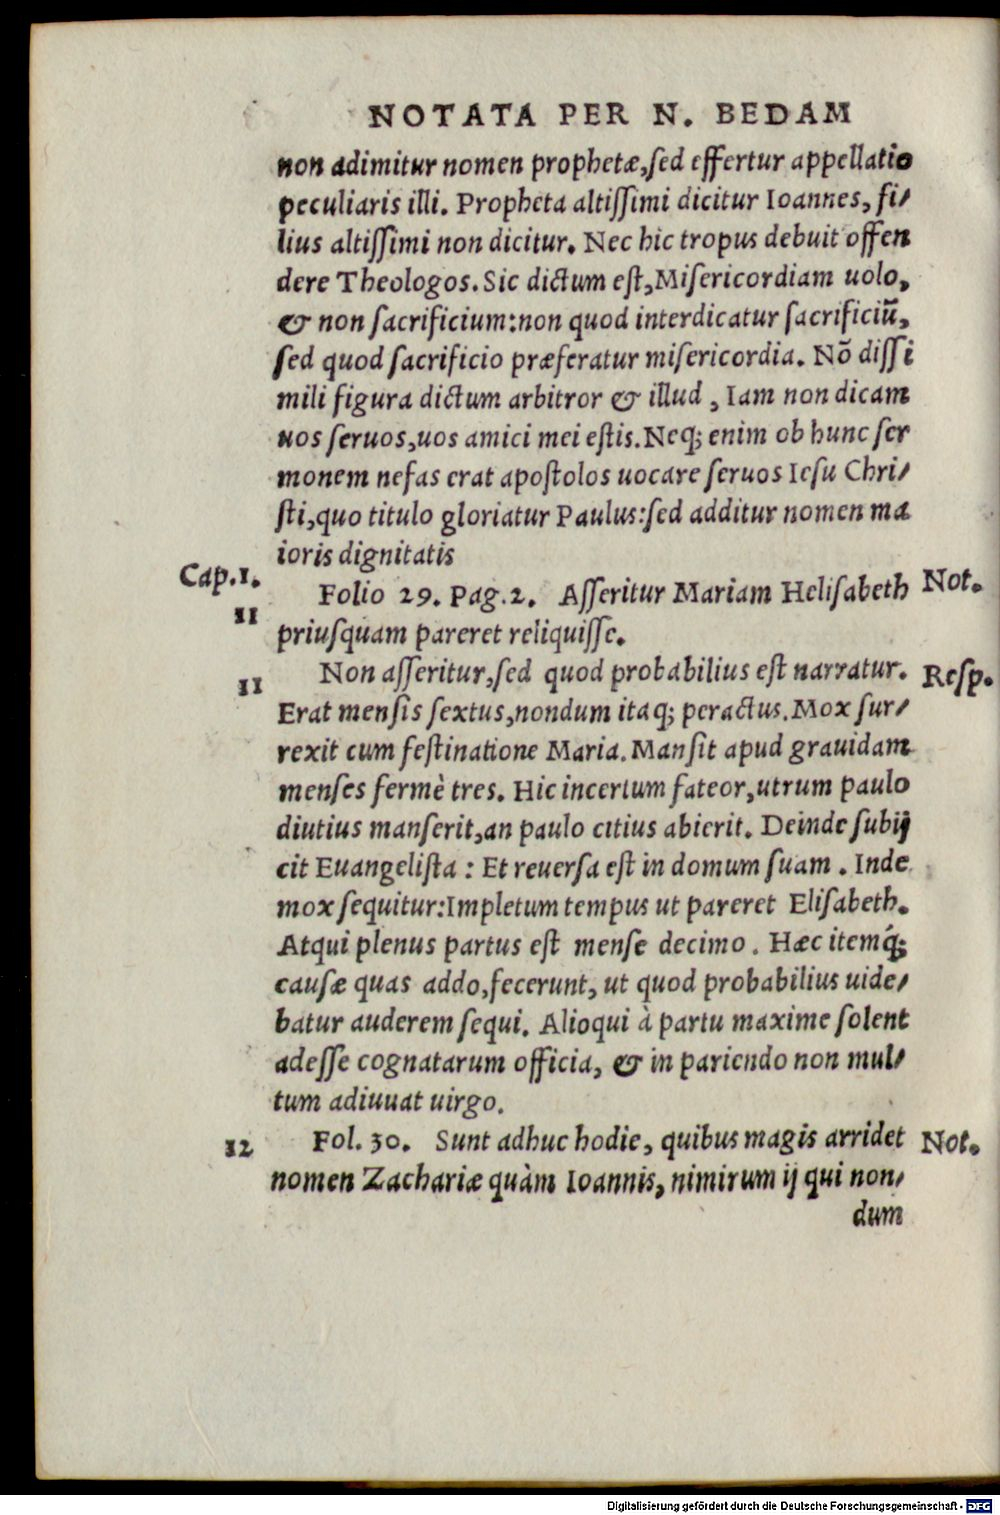 NOTATA PER N. BEDAM
non adimitur nomen prophetæ,ſed effertur appellatio
peculiaris illi. Propheta altiſſimi dicitur Ioannes, fi/
lius altiſſimi non dicitur. Nec hic tropus debuit offen
dere Theologos. Sic dictum eſt,Miſericordiam uolo,
& non ſacrificium:non quod interdicatur ſacrificiũ,
ſed quod ſacrificio præferatur miſericordia. Nõ diſſi
mili figura dictum arbitror & illud , Iam non dicam
uos ſeruos,uos amici mei eſtis. Neq; enim ob hunc ſer
monem nefas erat apoſtolos uocare ſeruos Ieſu Chri/
ſti,quo titulo gloriatur Paulus:ſed additur nomen ma
ioris dignitatis
Cap.1.
11 Folio 29. Pag.2. Aſſeritur Mariam Heliſabeth Not.
priuſquam pareret reliquiſſe.
11 Non aſſeritur,ſed quod probabilius eſt narratur. Reſp.
Erat menſis ſextus,nondum itaq; peractus. Mox ſur/
rexit cum feſtinatione Maria. Manſit apud grauidam
menſes fermè tres. Hic incertum fateor,utrum paulo
diutius manſerit,an paulo citius abierit. Deinde ſubij
cit Euangeliſta : Et reuerſa eſt in domum ſuam . Inde
mox ſequitur:Impletum tempus ut pareret Eliſabeth.
Atqui plenus partus eſt menſe decimo . Hæc itemq́;
cauſæ quas addo,fecerunt, ut quod probabilius uide/
batur auderem ſequi. Alioqui à partu maxime ſolent
adeſſe cognatarum officia, & in pariendo non mul/
tum adiuuat uirgo.
12 Fol. 30. Sunt adhuc hodie, quibus magis arridet Not.
nomen Zachariæ quàm Ioannis, nimirum ij qui non/
dum
Digitalisierung gefördert durch die Deutsche Forschungsgemeinschaft - DFG